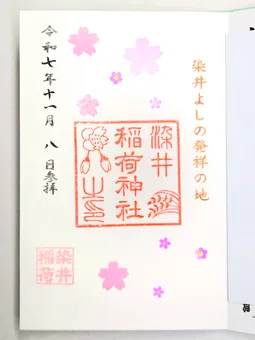 染井よしの発祥の地
染井
稲荷神社
之印
令和七年十一月八日参拝
染井
稲荷